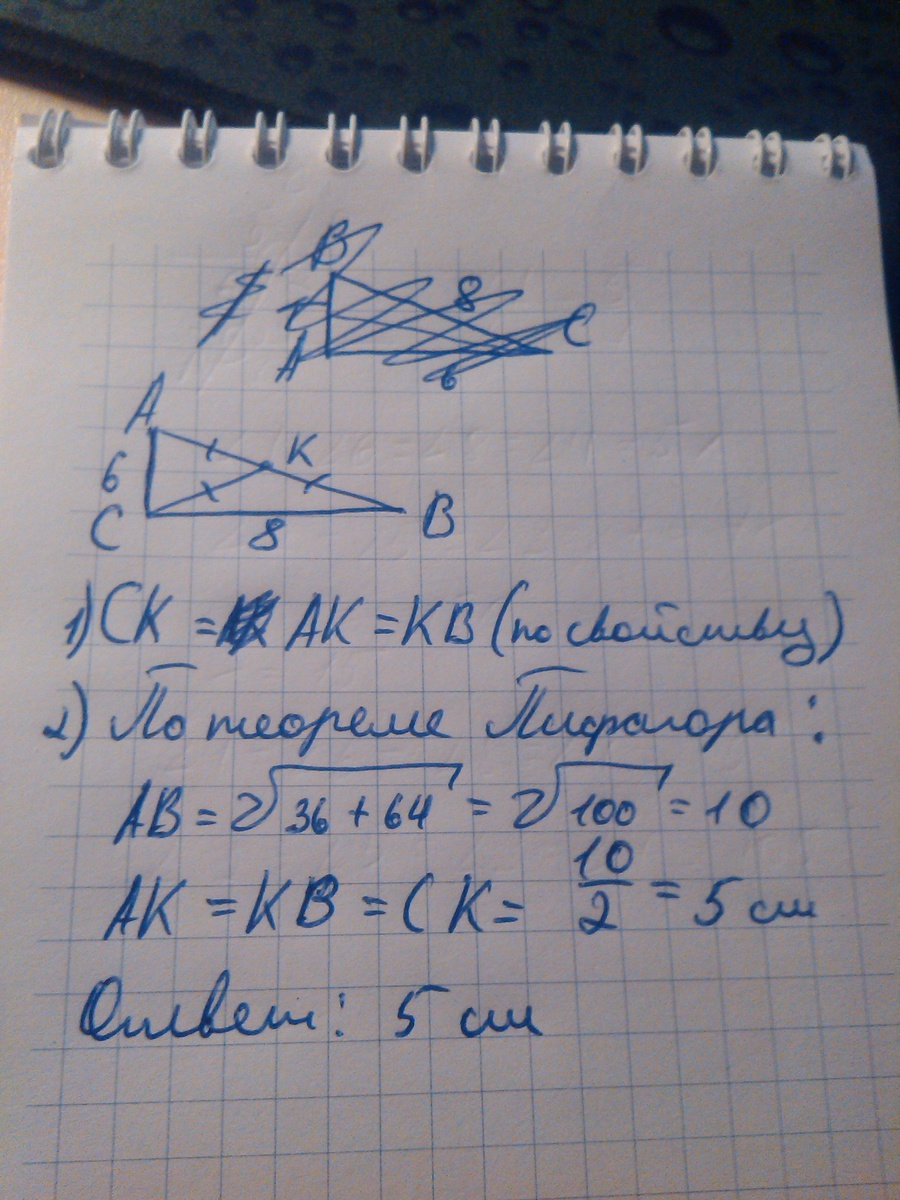 B
8
A
C
6
A
K
6
C
8
B
1) CK = AK = KB (по свойству)
2) По теореме Пифагора:
AB = √36 + 64 = √100 = 10
AK = KB = CK = 10/2 = 5 см
Ответ: 5 см